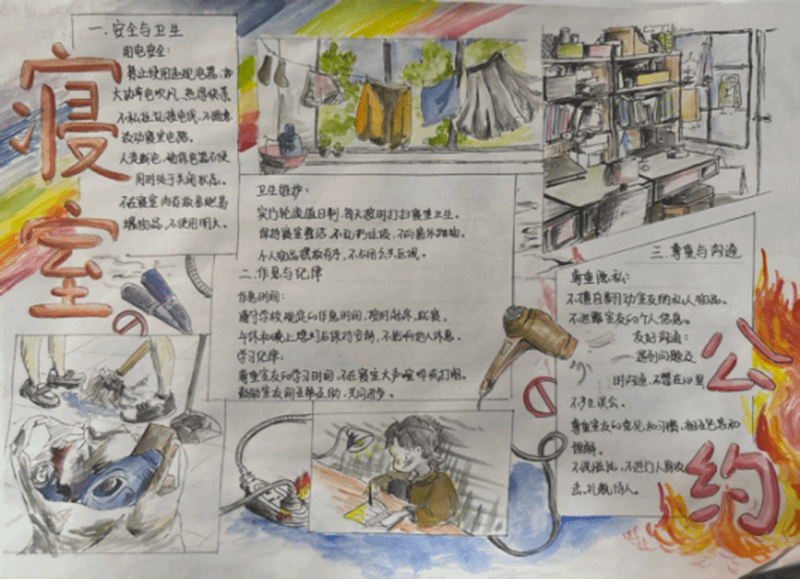 寝室
公约
一.安全与卫生
用电安全:
禁止使用违规电器,如
大功率电吹风、热得快等
不私拉乱接电线,不随意
改动寝室电路。
人走断电,确保电器不使
用时处于关闭状态。
不在寝室内存放易燃易
爆物品,不使用明火。
卫生维护:
实行轮流值日制,每天按时打扫寝室卫生。
保持寝室整洁,不乱扔垃圾,不向窗外抛物。
个人物品摆放有序,不占用公共区域。
二.作息与纪律
作息时间:
遵守学校规定的作息时间,按时起床,就寝。
午休和晚上熄灯后保持安静,不影响他人休息。
学习纪律:
尊重室友的学习时间,不在寝室大声喧哗或打闹。
鼓励室友间互帮互助,共同进步。
三.尊重与沟通
尊重隐私:
不擅自翻动室友的私人物品。
不泄露室友的个人信息。
友好沟通:
遇到问题及
时沟通,不憋在心里
不产生误会。
尊重室友的意见和习惯,相互包容和
理解。
不说脏话,不进行人身攻
击。礼貌待人。